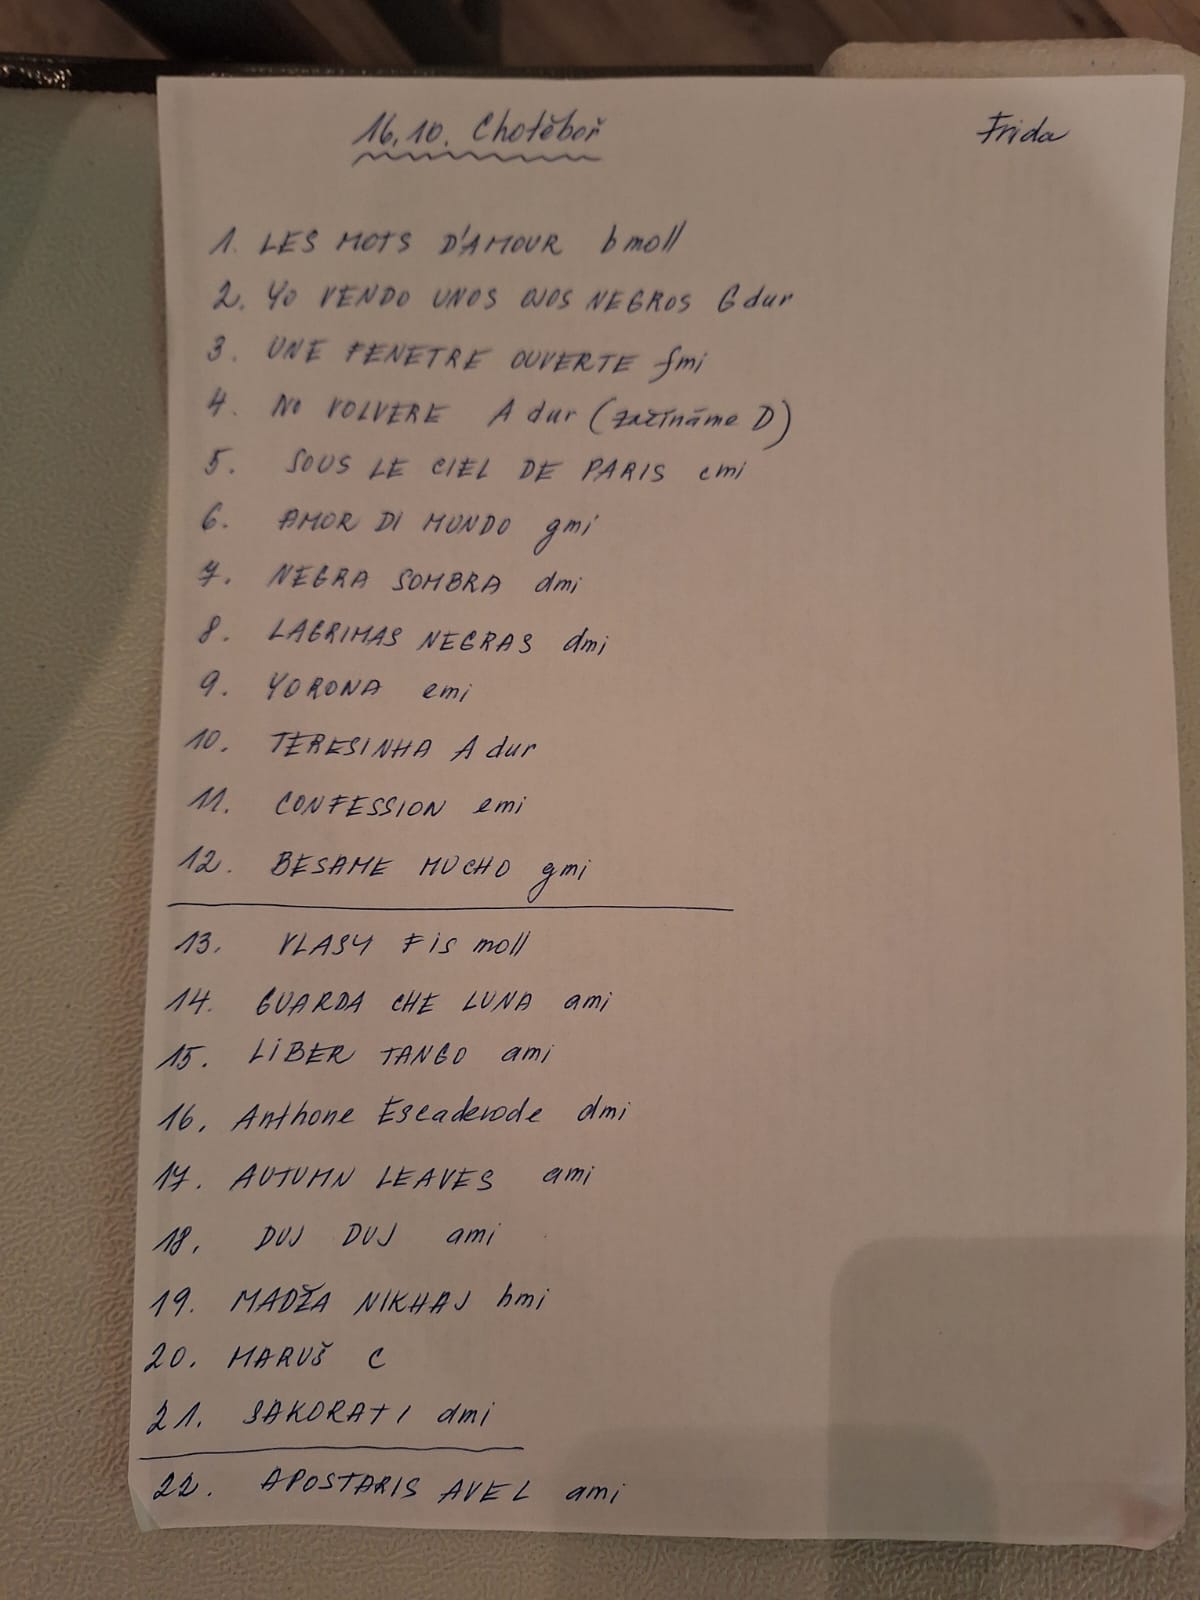 16.10. Chotěboř
Frida
1. LES MOTS D'AMOUR bmoll
2. YO VENDO UNOS OJOS NEGROS G dur
3. UNE FENETRE OUVERTE fmi
4. NO VOLVERE A dur (začínáme D)
5. SOUS LE CIEL DE PARIS emi
6. AMOR DI MUNDO gmi
7. NEGRA SOMBRA dmi
8. LAGRIMAS NEGRAS dmi
9. YORONA emi
10. TERESINHA A dur
11. CONFESSION emi
12. BESAME MUCHO gmi
13. VLASY Fis moll
14. GUARDA CHE LUNA ami
15. LIBER TANGO ami
16. Anthone Escaderode dmi
17. AUTUMN LEAVES ami
18. DUJ DUJ ami
19. MADŽA NIKHAJ hmi
20. MARUŠ C
21. SAKORATI dmi
22. APOSTARIS AVEL ami